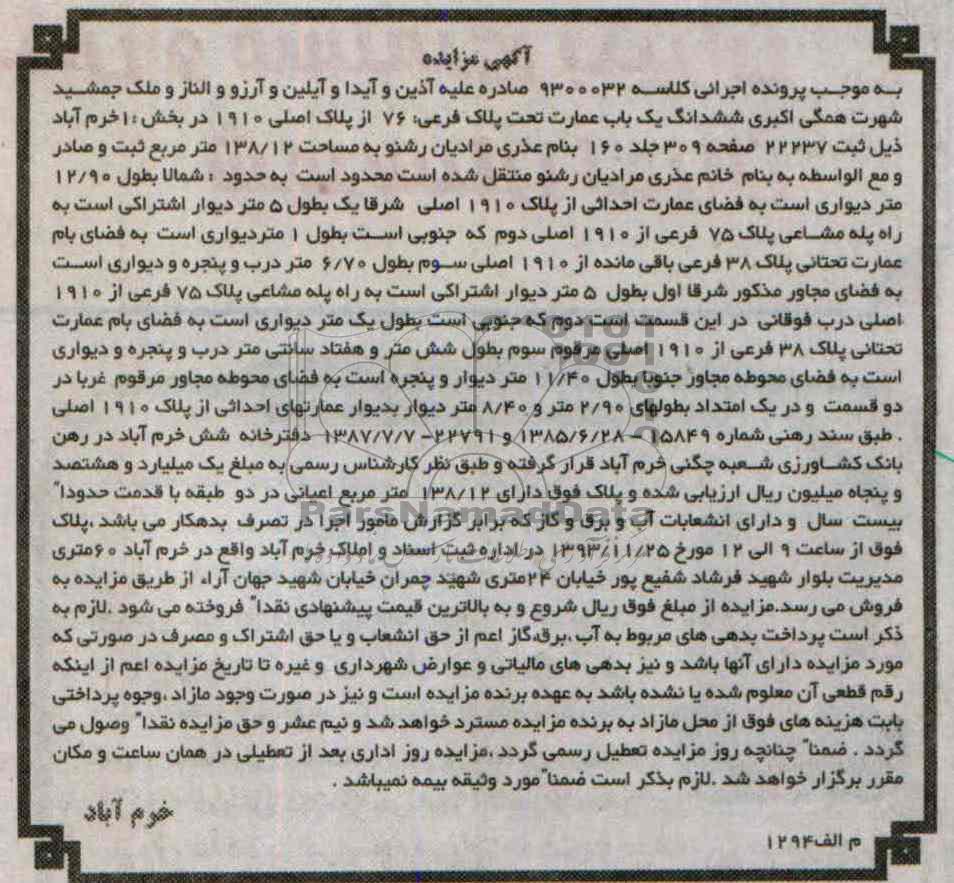 آگهی مزایده
به موجب پرونده اجرائی کلاسه ۹۳۰۰۰۳۲ صادره علیه آذین و آیدا و آیلین و آرزو و الناز و ملک جمشید
شهرت همگی اکبری ششدانگ یک باب عمارت تحت پلاک فرعی: ۷۶ از پلاک اصلی ۱۹۱۰ در بخش :۱خرم آباد
ذیل ثبت ۲۲۲۳۷ صفحه ۳۰۹ جلد ۱۶۰ بنام عذری مرادیان رشنو به مساحت ۱۳۸/۱۲ متر مربع ثبت و صادر
و مع الواسطه به بنام خانم عذری مرادیان رشنو منتقل شده است محدود است به حدود : شمالا بطول ۱۲/۹۰
متر دیواری است به فضای عمارت احداثی از پلاک ۱۹۱۰ اصلی شرقا یک بطول ۵ متر دیوار اشتراکی است به
راه پله مشاعی پلاک ۷۵ فرعی از ۱۹۱۰ اصلی دوم که جنوبی است بطول ۱ متردیواری است به فضای بام
عمارت تحتانی پلاک ۳۸ فرعی باقی مانده از ۱۹۱۰ اصلی سوم بطول ۶/۷۰ متر درب و پنجره و دیواری است
به فضای مجاور مذکور شرقا اول بطول ۵ متر دیوار اشتراکی است به راه پله مشاعی پلاک ۷۵ فرعی از ۱۹۱۰
اصلی درب فوقانی در این قسمت است دوم که جنوبی است بطول یک متر دیواری است به فضای بام عمارت
تحتانی پلاک ۳۸ فرعی از ۱۹۱۰ اصلی مرقوم سوم بطول شش متر و هفتاد سانتی متر درب و پنجره و دیواری
است به فضای محوطه مجاور جنوبا بطول ۱۱/۴۰ متر دیوار و پنجره است به فضای محوطه مجاور مرقوم غربا در
دو قسمت و در یک امتداد بطولهای ۲/۹۰ متر و ۸/۴۰ متر دیوار بدیوار عمارتهای احداثی از پلاک ۱۹۱۰ اصلی
. طبق سند رهنی شماره ۱۵۸۴۹ - ۱۳۸۵/۶/۲۸ و ۲۲۷۹۱- ۱۳۸۷/۷/۷ دفترخانه شش خرم آباد در رهن
بانک کشاورزی شعبه چگنی خرم آباد قرار گرفته و طبق نظر کارشناس رسمی به مبلغ یک میلیارد و هشتصد
و پنجاه میلیون ریال ارزیابی شده و پلاک فوق دارای ۱۳۸/۱۲ متر مربع اعیانی در دو طبقه با قدمت حدوداً
بیست سال و دارای انشعابات آب و برق و گاز که برابر گزارش مامور اجرا در تصرف بدهکار می باشد ،پلاک
فوق از ساعت ۹ الی ۱۲ مورخ ۱۳۹۳/۱۱/۲۵ در اداره ثبت اسناد و املاک خرم آباد واقع در خرم آباد ۶۰متری
مدیریت بلوار شهید فرشاد شفیع پور خیابان ۲۴متری شهید چمران خیابان شهید جهان آراء از طریق مزایده به
فروش می رسد.مزایده از مبلغ فوق ریال شروع و به بالاترین قیمت پیشنهادی نقداً فروخته می شود .لازم به
ذکر است پرداخت بدهی های مربوط به آب ،برق،گاز اعم از حق انشعاب و یا حق اشتراک و مصرف در صورتی که
مورد مزایده دارای آنها باشد و نیز بدهی های مالیاتی و عوارض شهرداری و غیره تا تاریخ مزایده اعم از اینکه
رقم قطعی آن معلوم شده یا نشده باشد به عهده برنده مزایده است و نیز در صورت وجود مازاد ،وجوه پرداختی
بابت هزینه های فوق از محل مازاد به برنده مزایده مسترد خواهد شد و نیم عشر و حق مزایده نقداً وصول می
گردد . ضمناً چنانچه روز مزایده تعطیل رسمی گردد ،مزایده روز اداری بعد از تعطیلی در همان ساعت و مکان
مقرر برگزار خواهد شد .لازم بذکر است ضمناً مورد وثیقه بیمه نمیباشد .
خرم آباد
م الف۱۲۹۴
ParsNamadData